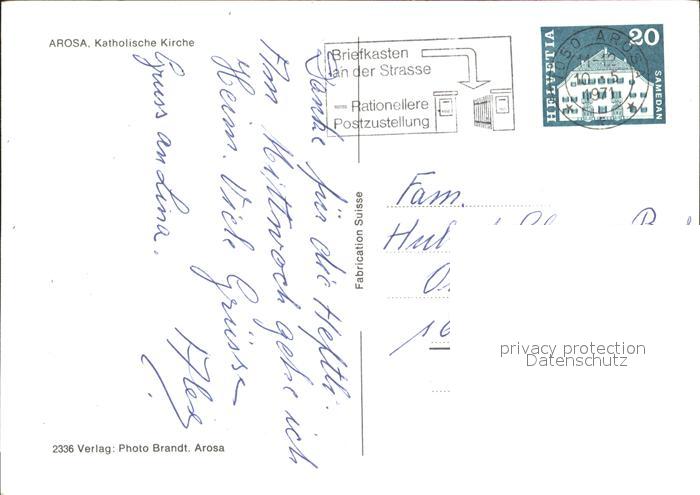 AROSA, Katholische Kirche
Danke für die Heftli.
Am Mittwoch gehe ich
Heim. Viele Grüsse
Gruss an Lina.
2336 Verlag: Photo Brandt. Arosa
Fabrication Suisse
Briefkasten
an der Strasse
Rationellere
Postzustellung
HELVETIA
20
SAMEDAN
50 AROSA
10.-5.
1971
Fam.
privacy protection
Datenschutz